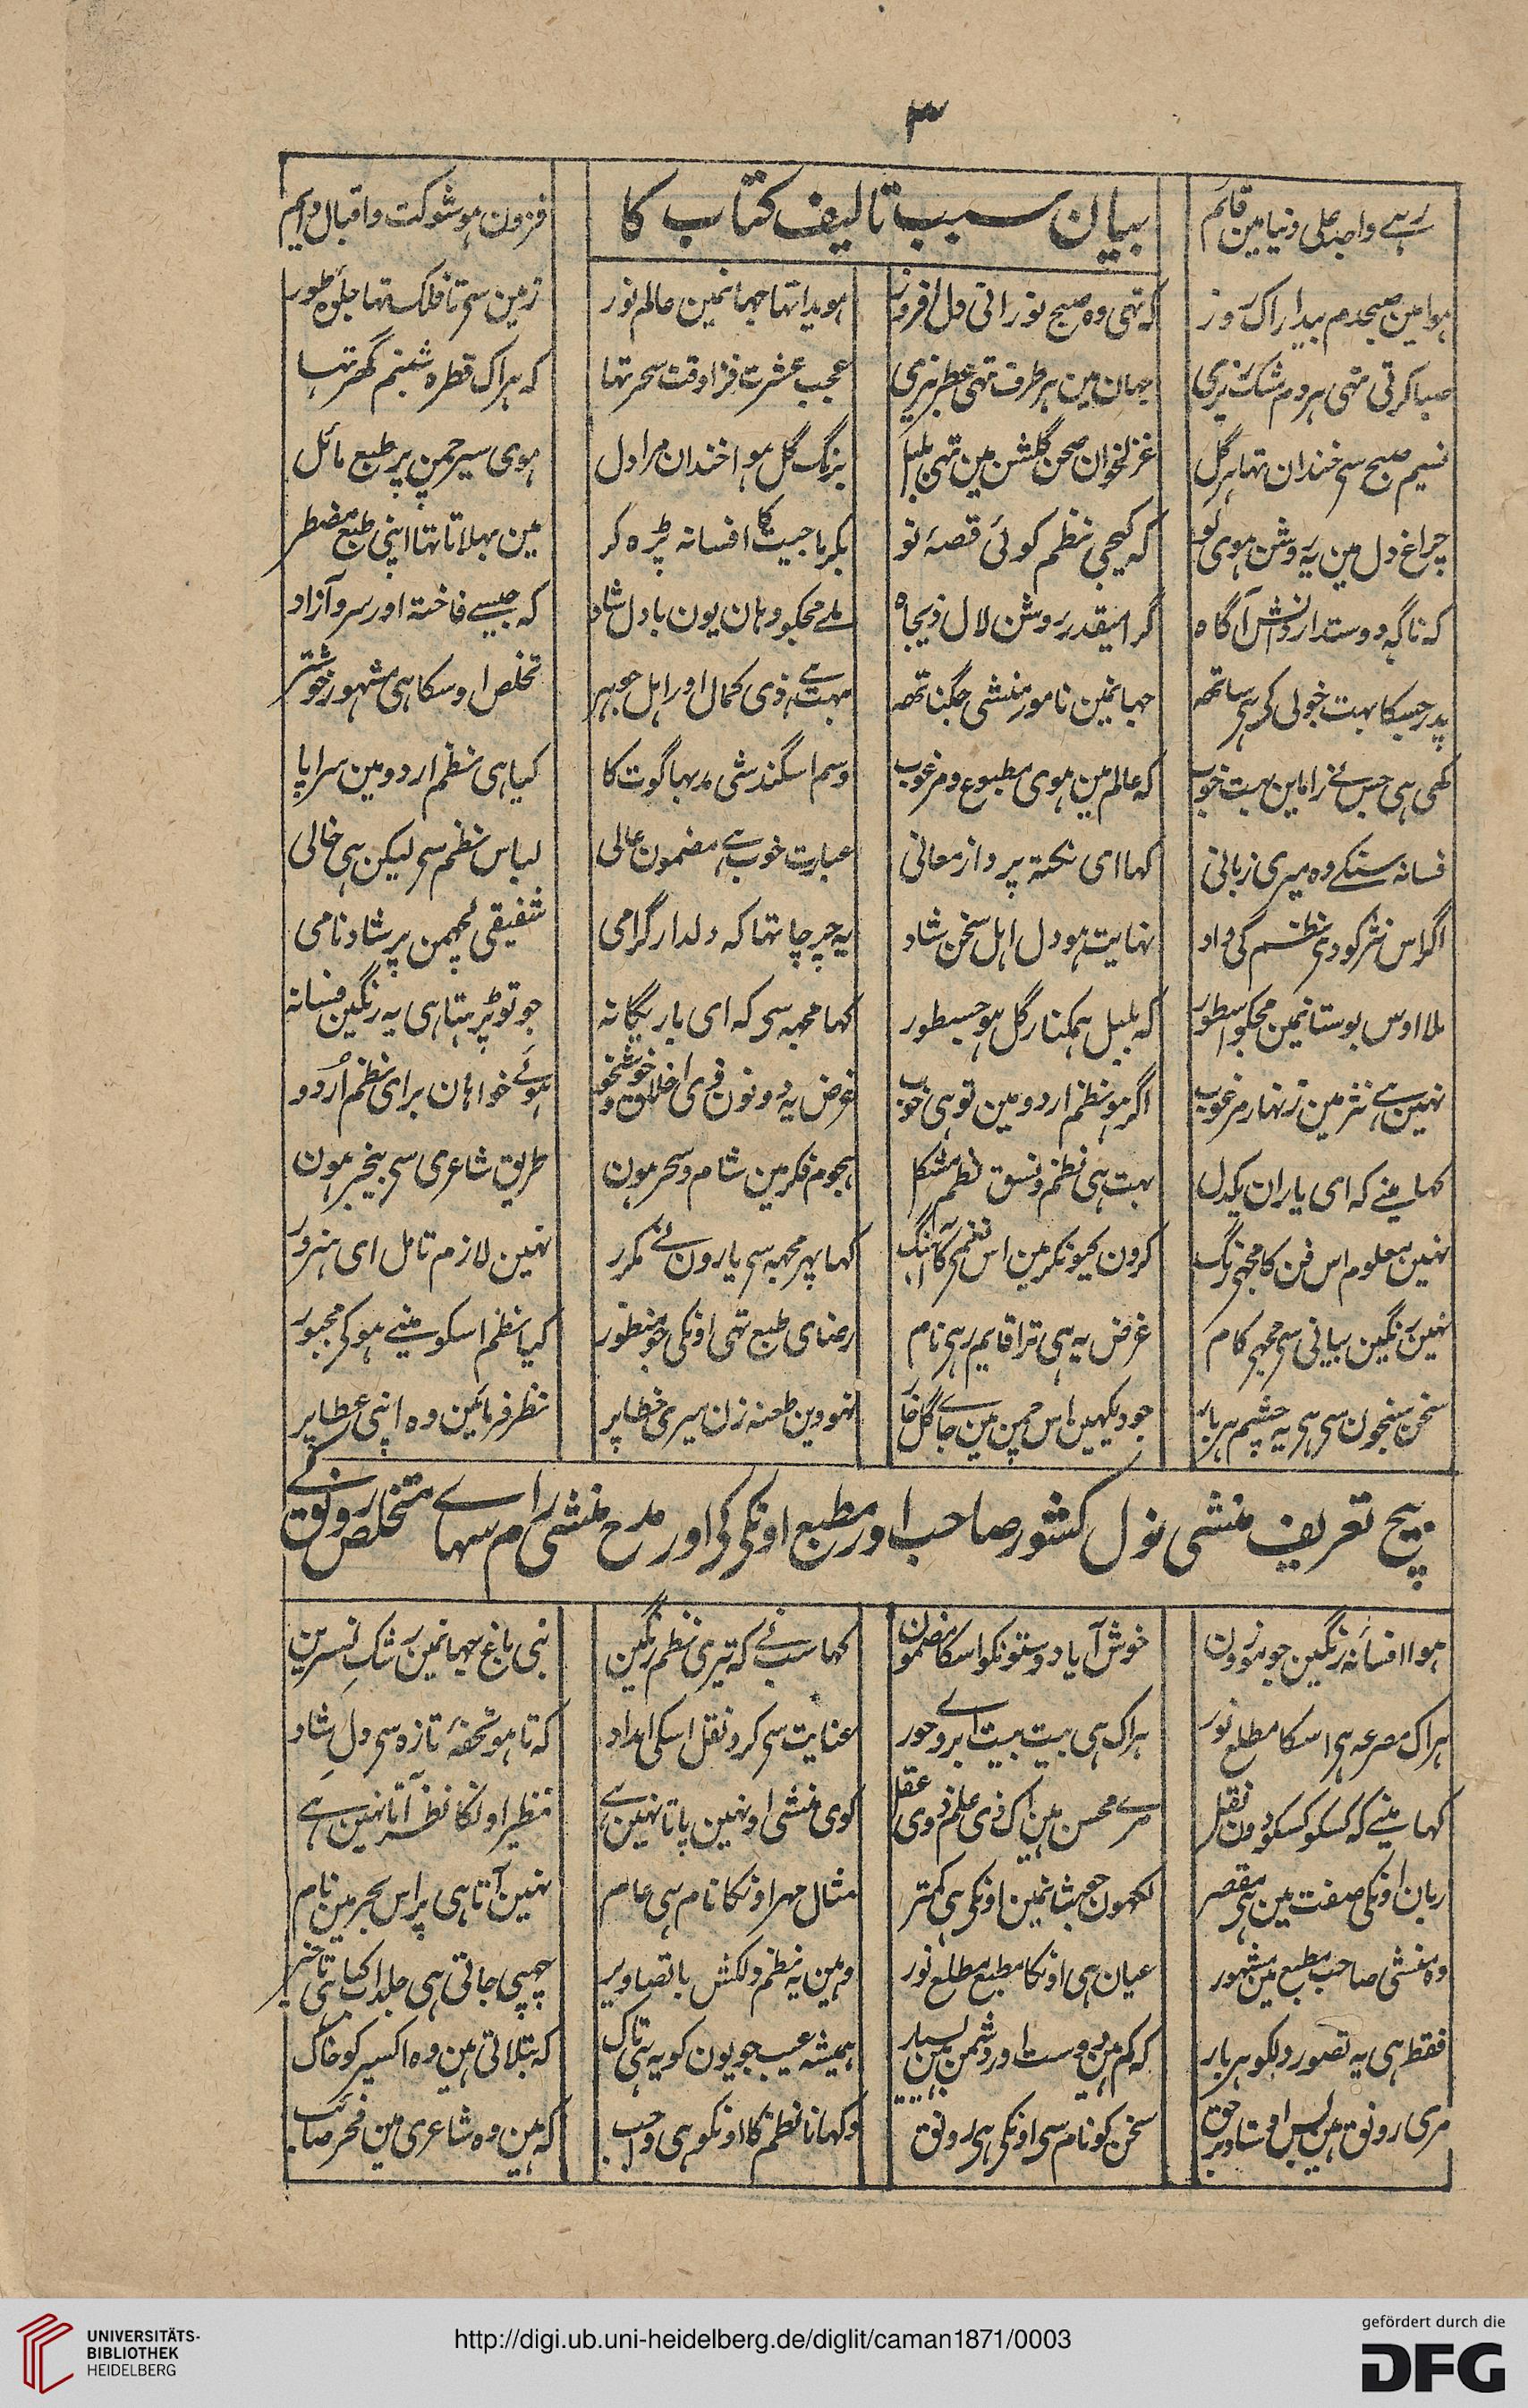 ۳
رہے واجد علی دنیا مین قائم
بیان سبب تالیف کتاب کا
فزون ہو شوکت و اقبال دایم
ہوا مین صبحدم بیدار اک روز
کہ تہی وہ صبح نورانی دل افروز
ہویدا تہا جہانمین عالم نور
زمین سی تا فلک تہا جلوۂ طور
صبا کرتی تہی ہر دم مشک ریزی
جہان مین ہر طرف تہی عطر بیزی
عجب عشرت فزا وقت سحر تہا
کہ ہر اک قطرہ شبنم گہر تہا
نسیم صبح سی خندان تہا ہر گل
غزلخوان صحن گلشن مین تہی بلبل
برنگ گل ہوا خندان مرا دل
ہوی سیر چمن پر طبع مائل
چراغ دل مین یہ روشن ہوی لو
کہ کیجی نظم کوئی قصۂ نو
بکرماجیت کا افسانہ پڑہ کر
مین بہلاتا تہا اپنی طبع مضطر
کہ ناگہ دوستدار دانش آگاہ
گرامیقدر روشن لال ذیجاہ
ملے مجکو وہان یون بادل شاد
کہ جیسے فاختہ اور سرو آزاد
پدر جسکا بہت خوبی کی ہی ساتہہ
جہانمین نامور منشی جگناتہہ
بہت ہے ذی کمال اور اہل جوہر
تخلص اوسکا ہی مشہور خوشتر
لکھی ہی جس نے راماین بہت خوب
کہ عالم مین ہوی مطبوع و مرغوب
دسم اسکند شری بہاگوت کا
کیا ہی نظم اردو مین سراپا
فسانہ سنکے وہ میری زبانی
کہا ای نکتہ پرداز معانی
عبارت خوب ہے مضمون عالی
لباس نظم سی لیکن ہی خالی
اگر اس نثر کو دی نظم کی داد
نہایت ہو دل اہل سخن شاد
یہ چرچا تہا کہ دلدار گرامی
شفیقی لچہمن پرشاد نامی
ملا اوس بوستانمین مجکو اسطور
کہ بلبل ہمکنار گل ہو جسطور
کہا مجہہ سی کہ ای یار یگانہ
جو تو پڑہتا ہی یہ رنگین فسانہ
نہین ہے نثر مین زنہار مرغوب
اگر ہو نظم اردو مین تو ہی خوب
غرض یہ دونون ذی اخلاق و خوشخو
ہوئے خواہان برای نظم اُردو
کہا مینے کہ ای یاران یکدل
بہت ہی نظم و نسق نظم مشکل
ہجوم فکر مین شام و سحر ہون
طریق شاعری سی بیخبر ہون
نہین معلوم اس فن کا مجہی رنگ
کرون کیونکر مین اس نغمی کا آہنگ
کہا پہر مجہہ سی یارون نے مکرر
نہین لازم تامل ای ہنرور
نہین رنگین بیانی سی مجہی کام
غرض یہ ہی ترا قایم رہی نام
رضای طبع تہی اونکی جو منظور
کیا نظم اسکو مینے ہو کی مجبور
سخن سنجون سی ہی یہ چشم ہر بار
جو دیکہین اس چمن مین جاے گل خار
نہووین طعنہ زن میری خطا پر
نظر فرمائین وہ اپنی عطا پر
بیچ تعریف منشی نول کشور صاحب اور مطبع اونکی کی اور مدح منشی رام سہاے متخلص رونق کے
ہوا افسانۂ رنگین جو موزون
خوش آیا دوستونکو اسکا مضمون
کہا سبنے کہ تیری نظم رنگین
بنی باغ جہانمین رشکِ نسرین
ہر اک مصرعہ ہی اسکا مطلع نور
ہر اک ہی بیت بیت ابروے حور
عنایت سی کرو نقل اسکی امداد
کہ تا ہو تحفۂ تازہ سی دلِ شاد
کہا مینے کہ کسکو کسکو دون نقل
مرے محسن ہین اک ذی علم ذوی عقل
کوی منشی اونہین پاتا نہین ہے
نظیر اونکا نظر آتا نہین ہے
زبان اونکی صفت مین ہی مقصر
لکہون جو شانمین اونکی ہی کمتر
مثال مہر اونکا نام ہی عام
نہین آتا ہی پر اس بحر مین نام
وہ منشی صاحب مطبع ہین مشہور
عیان ہی اونکا مطبع مطلع نور
وہین یہ نظم دلکش با تصاویر
چہپی جاتی ہی جلد اب کیا ہی تاخیر
فقط ہی یہ تصور دلکو ہر بار
کہ کم ہین دوست اور دشمن ہین بسیار
ہمیشہ عیب جویون کو یہ ہی تاک
کہ بتلاتی ہین وہ اکسیر کو خاک
مری رونق ہین بس اوستاد برحق
سخن کو نام سی اونکی ہی رونق
دکہانا نظم کا اونکو ہی واجب
کہ ہین وہ شاعری مین فخر صائب
UNIVERSITÄTS-
BIBLIOTHEK
HEIDELBERG
http://digi.ub.uni-heidelberg.de/diglit/caman1871/0003
gefördert durch die
DFG